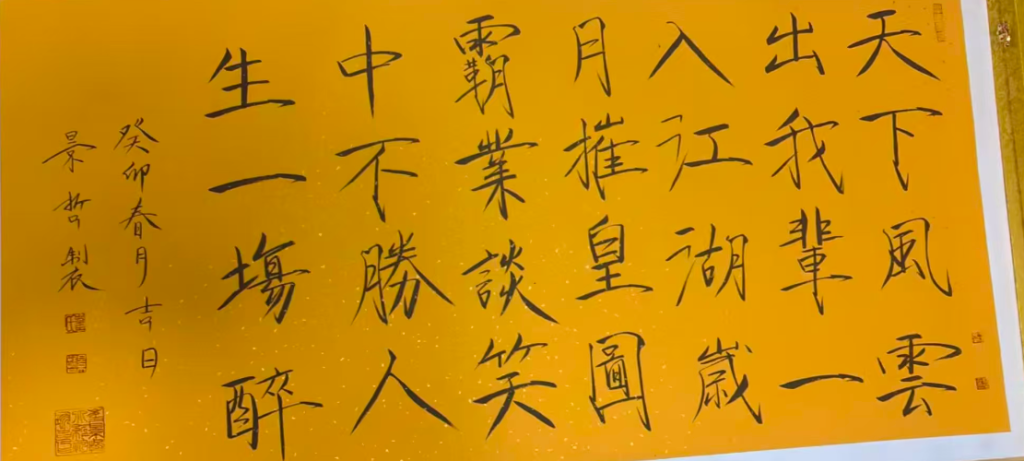 天下風雲
出我輩一
入江湖歲
月摧皇圖
霸業談笑
中不勝人
生一場醉
癸卯春月吉日
景哲製